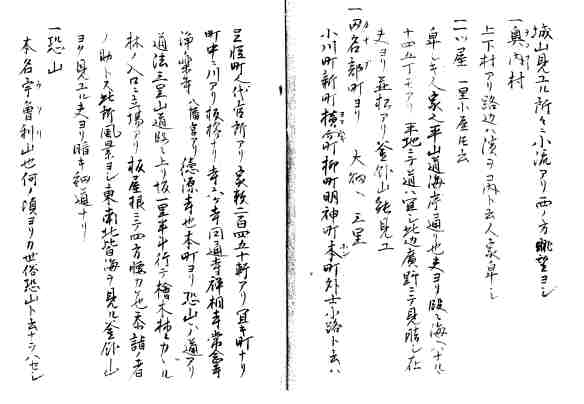 城山見エル所々ニ小流アリ西ノ方眺望ヨシ
一奥内村
上下村アリ路辺ハ濱ヲコ内ト云人家卑シ
二ツ屋 一里小屋共云
卑シキ人家也平山道海岸通リ也夫ヨリ段々海ヘナル
十四五丁 平地ニテ道ハ宜シ此辺廣野ニテ見晴シ在
夫ヨリ並松アリ釜臥山能見エ
一田名部町ヨリ 大畑ヘ 三里
小川町新町横町柳町明神町本町外ニ士小路ト云ハ
町代官所アリ家数二百四五十軒アリ宜キ町ナリ
町中ニ川アリ板橋ナリ寺六ケ寺円通寺祥桐寺常念寺
浄楽寺 八幡宮アリ徳源寺也本町ヨリ恐山ヘ道アリ
道法三里山道段々上リ坂一里半斗行テ檜木林ニカヽル
林ノ入口ニ立場アリ板屋根ニテ四方腰カケ也参詣ノ者
ノ助トス此所風景ヨシ東南北皆海ヲ見ル釜臥山
ヨク見エル夫ヨリ暗キ細道ナリ
一恐山
本名宇曽利山也何ノ頃ヨリカ世俗恐山ト云ナラハセシ